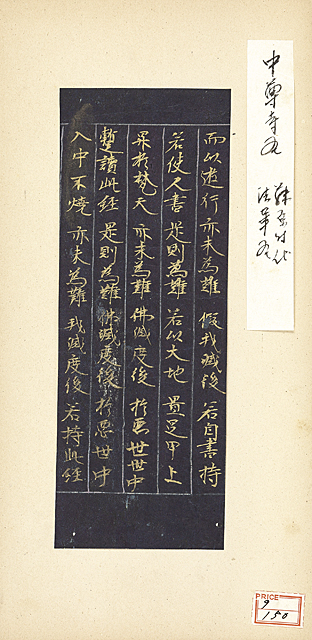 中尊寺切
法華切
而以遊行 亦未為難 假我滅後 若自書持
若使人書 是則為難 若以大地 置足甲上
昇於梵天 亦未為難 佛滅度後 於悪世世中
暫讀此経 是則為難 佛滅度後 於悪世中
入中不焼 亦未為難 我滅度後 若持此経
PRICE
9
150